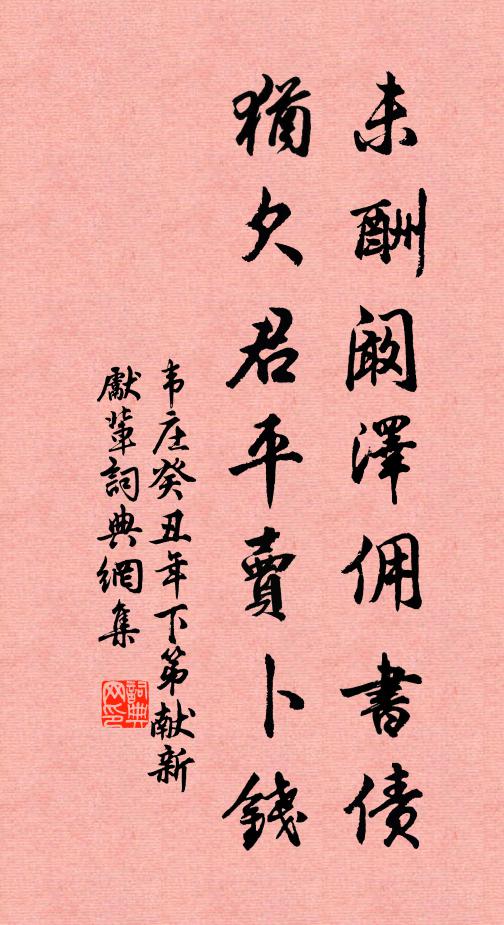 未酬阚澤佣書債
猶欠君平賣卜錢
韦庄癸丑年下第献新
獻輩詞典網集
詞典网印